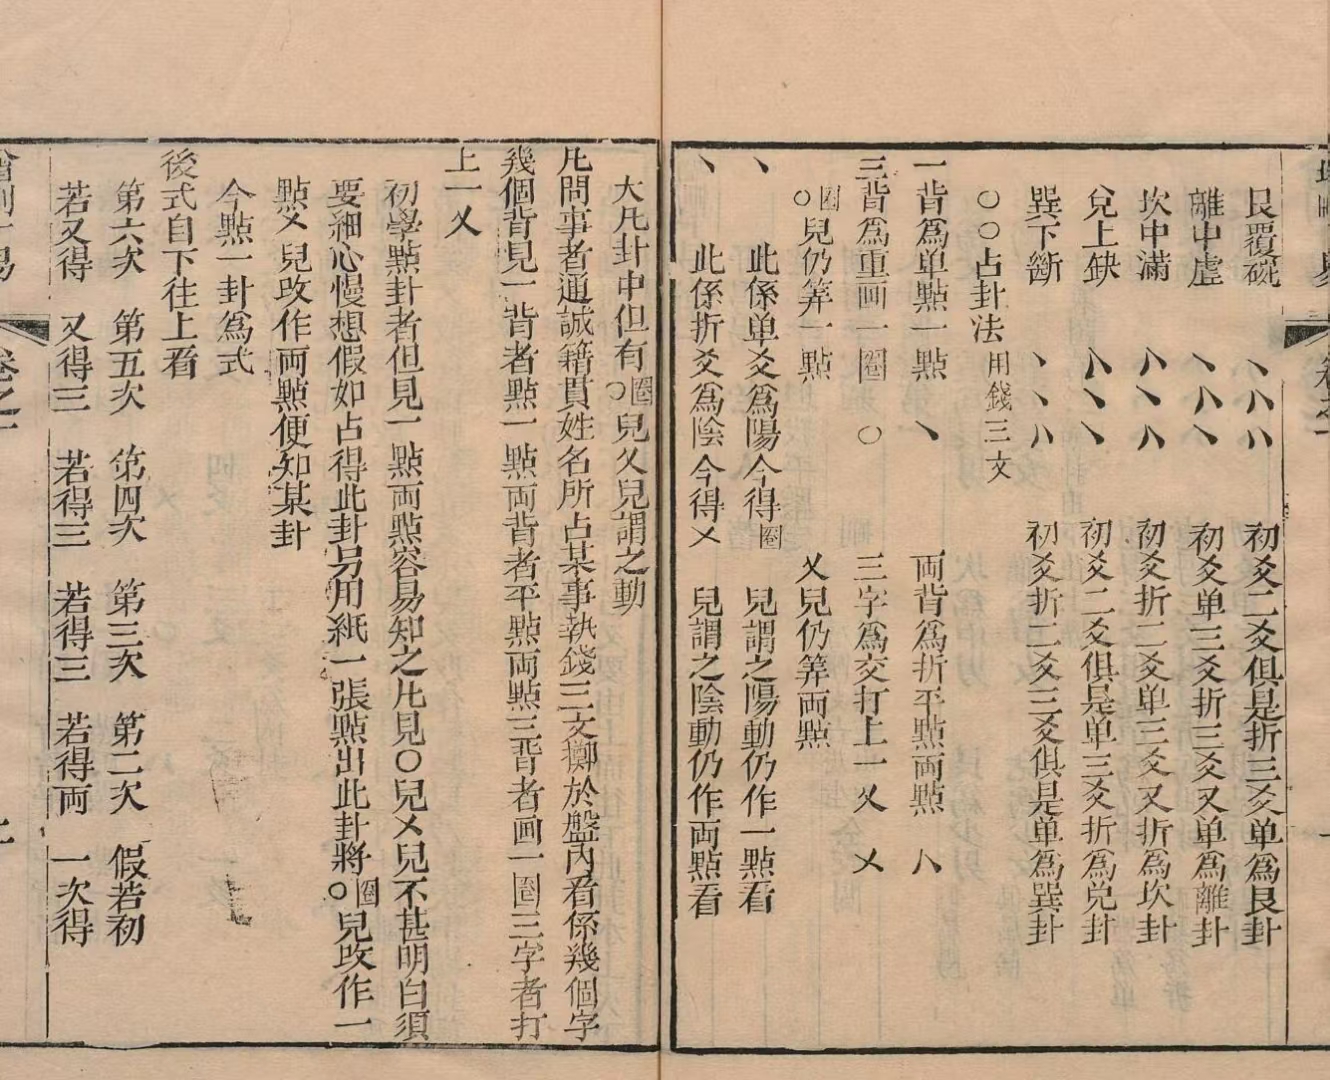 艮覆碗 丶八八 初爻二爻俱是折三爻单爲艮卦
離中虛 丶八丶 初爻单二爻折三爻又单爲離卦
坎中滿 八丶八 初爻折二爻单三爻又折爲坎卦
兌上缺 八丶丶 初爻二爻俱是单三爻折爲兌卦
巽下斷 丶丶八 初爻折二爻三爻俱是单爲巽卦
○○占卦法 用錢三文
一背爲单點一點 丶 両背爲折平點両點 八
三背爲重画一圈 ○ 三字爲交打上一乂 乂
○圈兒仍筭一點 乂兒仍筭両點
丶 此係单爻爲陽今得圈 兒謂之陽動仍作一點看
丶 此係折爻爲陰今得乂 兒謂之陰動仍作両點看
大凡卦中但有○圈兒乂兒謂之動
凡問事者通誠籍貫姓名所占某事執錢三文擲於盤內看係幾個字
幾個背見一背者點一點両背者平點両點三背者画一圈三字者打
上一乂
初學點卦者但見一點両點容易知之凡見○兒乂兒不甚明白須
要細心慢想假如占得此卦另用紙一張點出此卦將○圈兒攺作一
點乂兒攺作両點便知某卦
今點一卦爲式
後式自下往上看
第六次 第五次 第四次 第三次 第二次 假若初
若又得 又得三 若得三 若得三 若得両 一次得